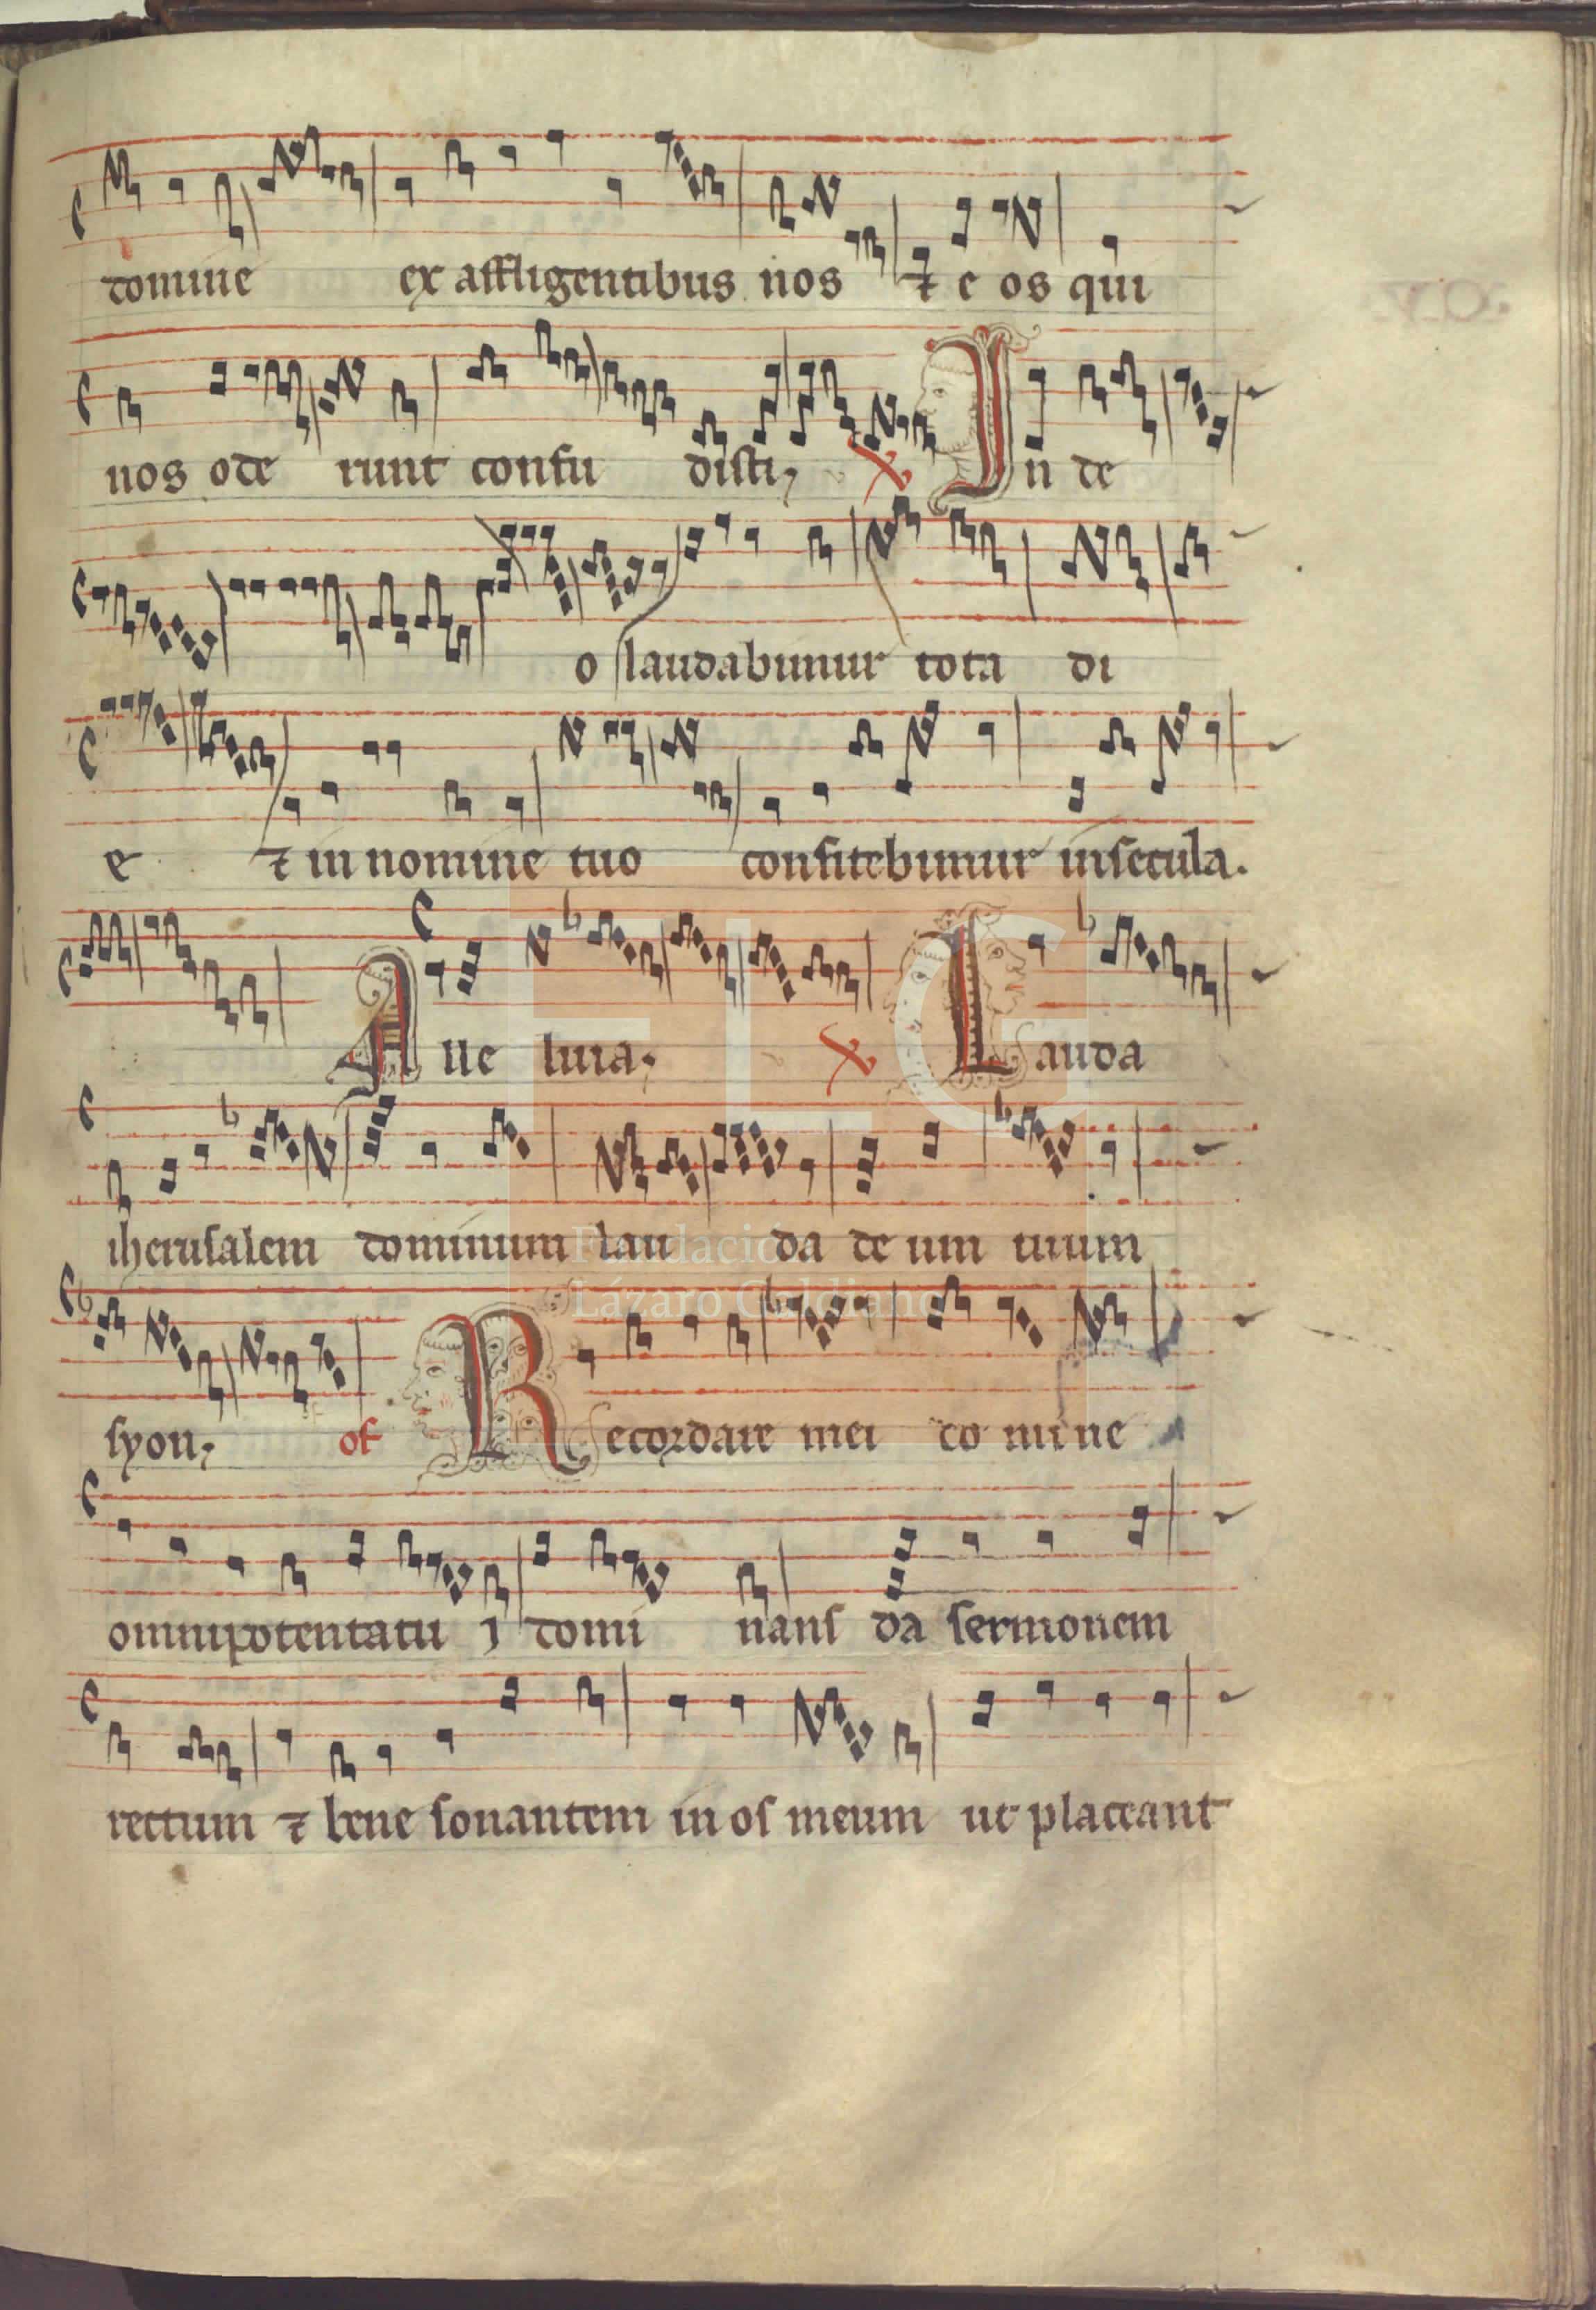 domine ex affligentibus nos ⁊ e os qui
nos ode runt confu disti, ℣ In de
o laudabimur tota di
e ⁊ in nomine tuo confitebimur insecula.
Alle luia. ℣ Lauda
iherusalem dominum lau da de um tuum
syon, of Recordare mei do mi ne
omnipotentatu i domi nans da sermonem
rectum ⁊ bene sonantem in os meum ut placeant
FLG
Fundación
Lázaro Galdiano